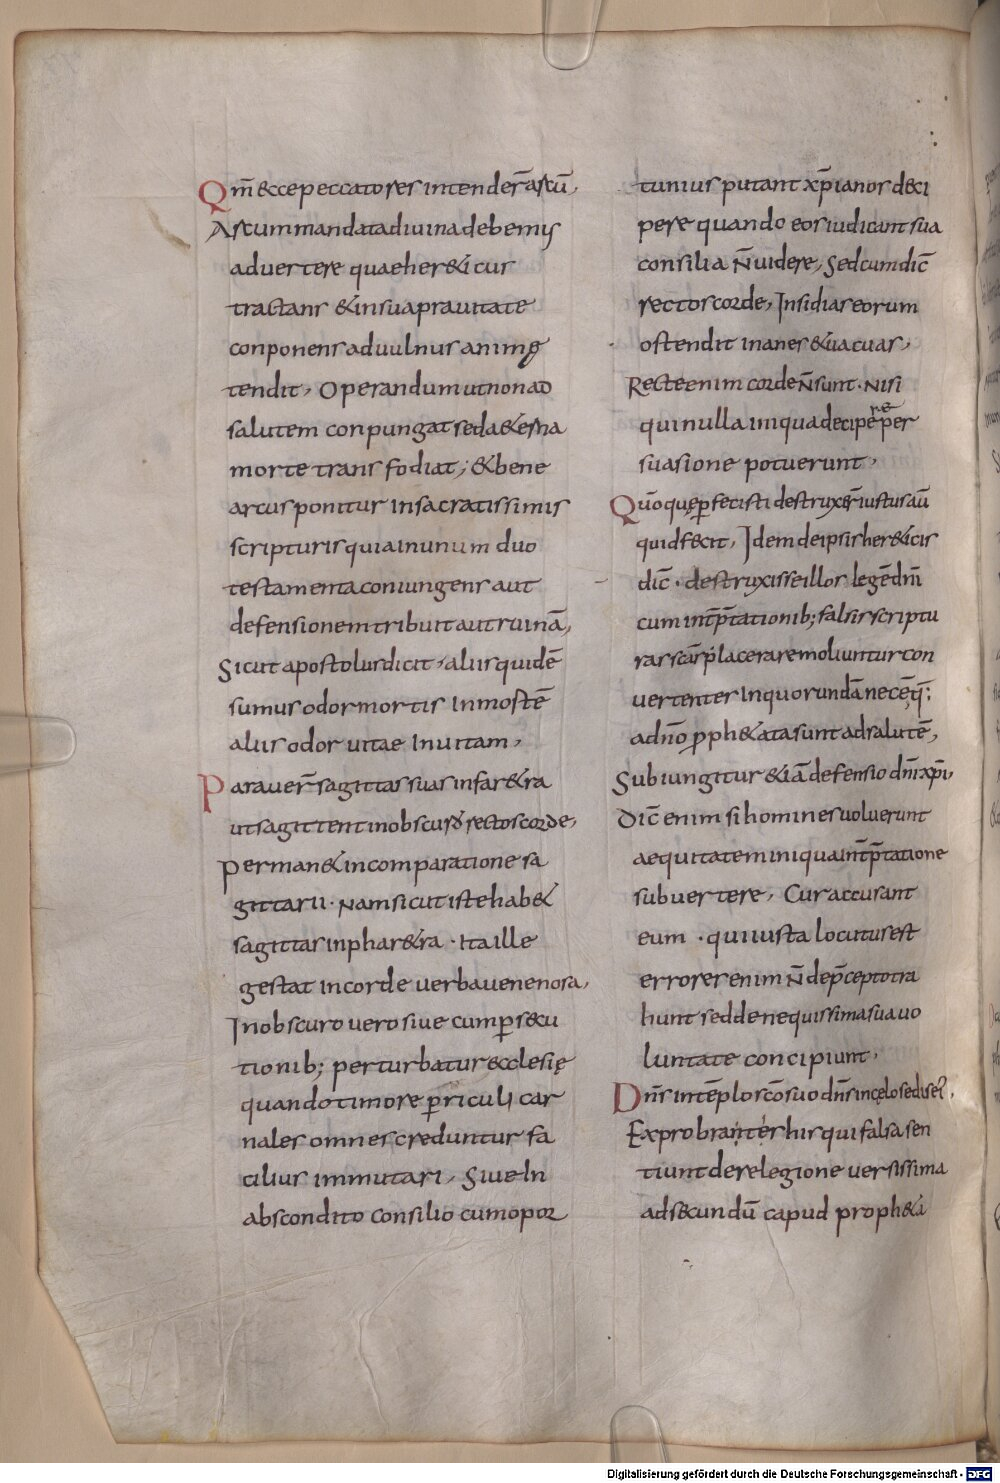 Qm̄ ecce peccatores intender̄ arcū,
Arcum mandata divina debemus
advertere quae heretícus
tractans & in sua pravitate
conponens ad vulnus animę
tendit, Operandum ut non ad
salutem conpungat sed aeterna
morte transfodiat; & bene
arcus ponitur in sacratissimis
scripturis quia in unum duo
testamenta coniungens aut
defensionem tribuit aut ruinā,
Sicut apostolus dicit, aliis quidē
sumus odor mortis in mortē
aliis odor vitae in vitam,
Paraver̄ sagittas suas in faretra
ut sagittent in obscuro rectos corde,
Permanet in comparatione sa
gittarii. Nam sicut iste habet
sagittas in pharetra. Ita ille
gestat in corde verba venenosa,
In obscuro vero sive cum p̱secu
tionib; perturbatur ecclesię
quando timore p̱riculi car
nales omnes creduntur fa
cilius immutari, Sive in
abscondito consilio cum opor
tunius putant xp̄ianos deci
pere quando eos iudicant sua
consilia n̄ videre, Sed cum dic̄
rectos corde, Insidias eorum
ostendit inanes & vacuas,
Recte enim corde n̄ sunt. Nisi
qui nulla iniqua decipere per
suasione potuerunt,
Qūo quę p̱fecisti destruxer̄ iustus aū
quid fecit, Idem de ipsis hereticis
dic̄. destruxisse illos legē dn̄i
cum int̄p̄tationib; falsis scriptu
ras sc̄as p̱ lacerare moliuntur con
vertentes in quorundā necē q̄;
ad n̄o p̱phetata sunt ad salutē,
Subiungitur & iā defensio dn̄i xp̄i,
Dic̄ enim si homines voluerunt
aequitatem iniqua int̄p̄tatione
subvertere, Cur accusant
eum. qui iusta locutus est
errores enim n̄ de p̄cepto tra
hunt sed de nequissima sua vo
luntate concipiunt,
Dn̄s in tēplo sc̄o suo dn̄s in cęlo sedis ei,
Exprobranter his qui falsa sen
tiunt de relegione verissima
ad secundū capud propheta